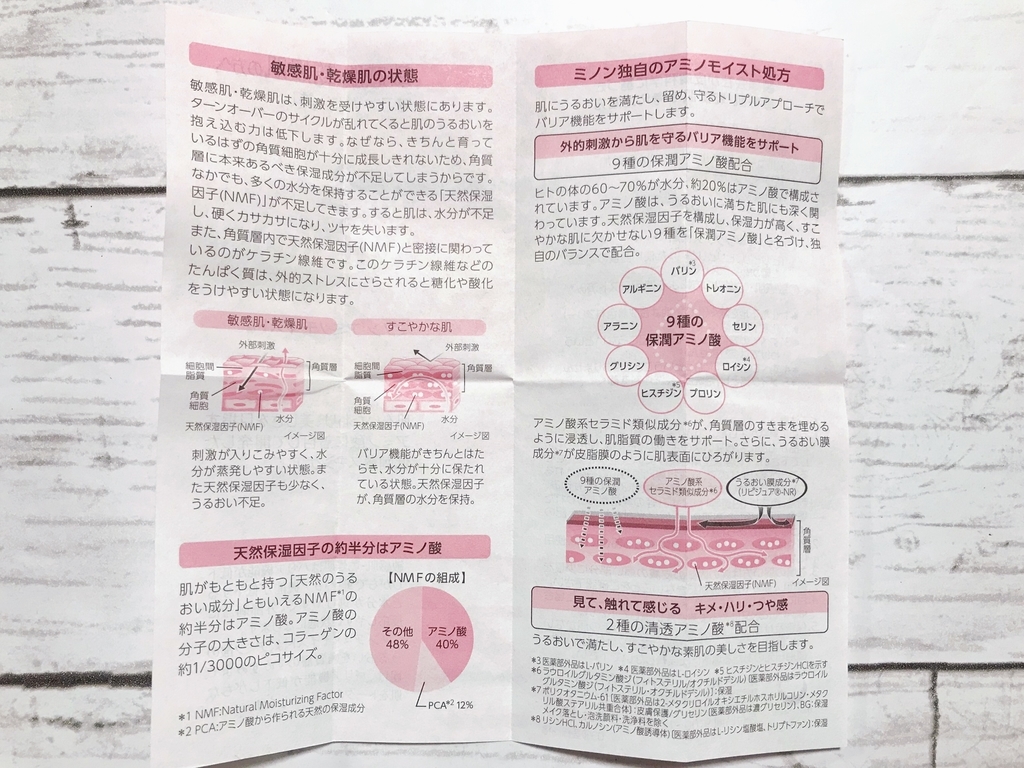 敏感肌・乾燥肌の状態
敏感肌・乾燥肌は、刺激を受けやすい状態にあります。
ターンオーバーのサイクルが乱れてくると肌のうるおいを
抱え込む力は低下します。なぜなら、きちんと育って
いるはずの角質細胞が十分に成長しきれないため、角質
層に本来あるべき保湿成分が不足してしまうからです。
なかでも、多くの水分を保持することができる「天然保湿
因子(NMF)」が不足してきます。すると肌は、水分が不足
し、硬くカサカサになり、ツヤを失います。
また、角質層内で天然保湿因子(NMF)と密接に関わって
いるのがケラチン線維です。このケラチン線維などの
たんぱく質は、外的ストレスにさらされると糖化や酸化
をうけやすい状態になります。
敏感肌・乾燥肌
外部刺激
細胞間
脂質
角質層
角質
細胞
水分
天然保湿因子(NMF)
イメージ図
刺激が入りこみやすく、水
分が蒸発しやすい状態。ま
た天然保湿因子も少なく、
うるおい不足。
すこやかな肌
外部刺激
細胞間
脂質
角質層
角質
細胞
水分
天然保湿因子(NMF)
イメージ図
バリア機能がきちんとはた
らき、水分が十分に保たれ
ている状態。天然保湿因子
が、角質層の水分を保持。
天然保湿因子の約半分はアミノ酸
肌がもともと持つ「天然のうる
おい成分」ともいえるNMF*1の
約半分はアミノ酸。アミノ酸の
分子の大きさは、コラーゲンの
約1/3000のピコサイズ。
【NMFの組成】
その他
48%
アミノ酸
40%
PCA*2 12%
*1 NMF:Natural Moisturizing Factor
*2 PCA:アミノ酸から作られる天然の保湿成分
ミノン独自のアミノモイスト処方
肌にうるおいを満たし、留め、守るトリプルアプローチで
バリア機能をサポートします。
外的刺激から肌を守るバリア機能をサポート
9種の保潤アミノ酸配合
ヒトの体の60～70%が水分、約20%はアミノ酸で構成さ
れています。アミノ酸は、うるおいに満ちた肌にも深く関
わっています。天然保湿因子を構成し、保湿力が高く、すこ
やかな肌に欠かせない9種を「保潤アミノ酸」と名づけ、独
自のバランスで配合。
バリン*3
アルギニン
トレオニン
アラニン
9種の
保潤アミノ酸
セリン
グリシン
ロイシン*4
ヒスチジン*5
プロリン
アミノ酸系セラミド類似成分*6が、角質層のすきまを埋める
ように浸透し、肌脂質の働きをサポート。さらに、うるおい膜
成分*7が皮脂膜のように肌表面にひろがります。
9種の保潤
アミノ酸
アミノ酸系
セラミド類似成分*6
うるおい膜成分*7
(リピジュア®-NR)
角質層
天然保湿因子(NMF)
イメージ図
見て、触れて感じる キメ・ハリ・つや感
2種の清透アミノ酸*8配合
うるおいで満たし、すこやかな素肌の美しさを目指します。
*3 医薬部外品はL-バリン *4 医薬部外品はL-ロイシン *5 ヒスチジンとヒスチジンHClを示す
*6 ラウロイルグルタミン酸ジ(フィトステリル/オクチルドデシル)[医薬部外品はラウロイル
グルタミン酸ジ(フィトステリル・オクチルドデシル)]:保湿
*7 ポリクオタニウム-61[医薬部外品は2-メタクリロイルオキシエチルホスホリルコリン・メタク
リル酸ステアリル共重合体]:皮膚保護/グリセリン[医薬部外品は濃グリセリン]、BG:保湿
メイク落とし・泡洗顔料・洗浄料を除く
*8 リシンHCl、カルノシン(アミノ酸誘導体)[医薬部外品はL-リシン塩酸塩、トリプトファン]:保湿